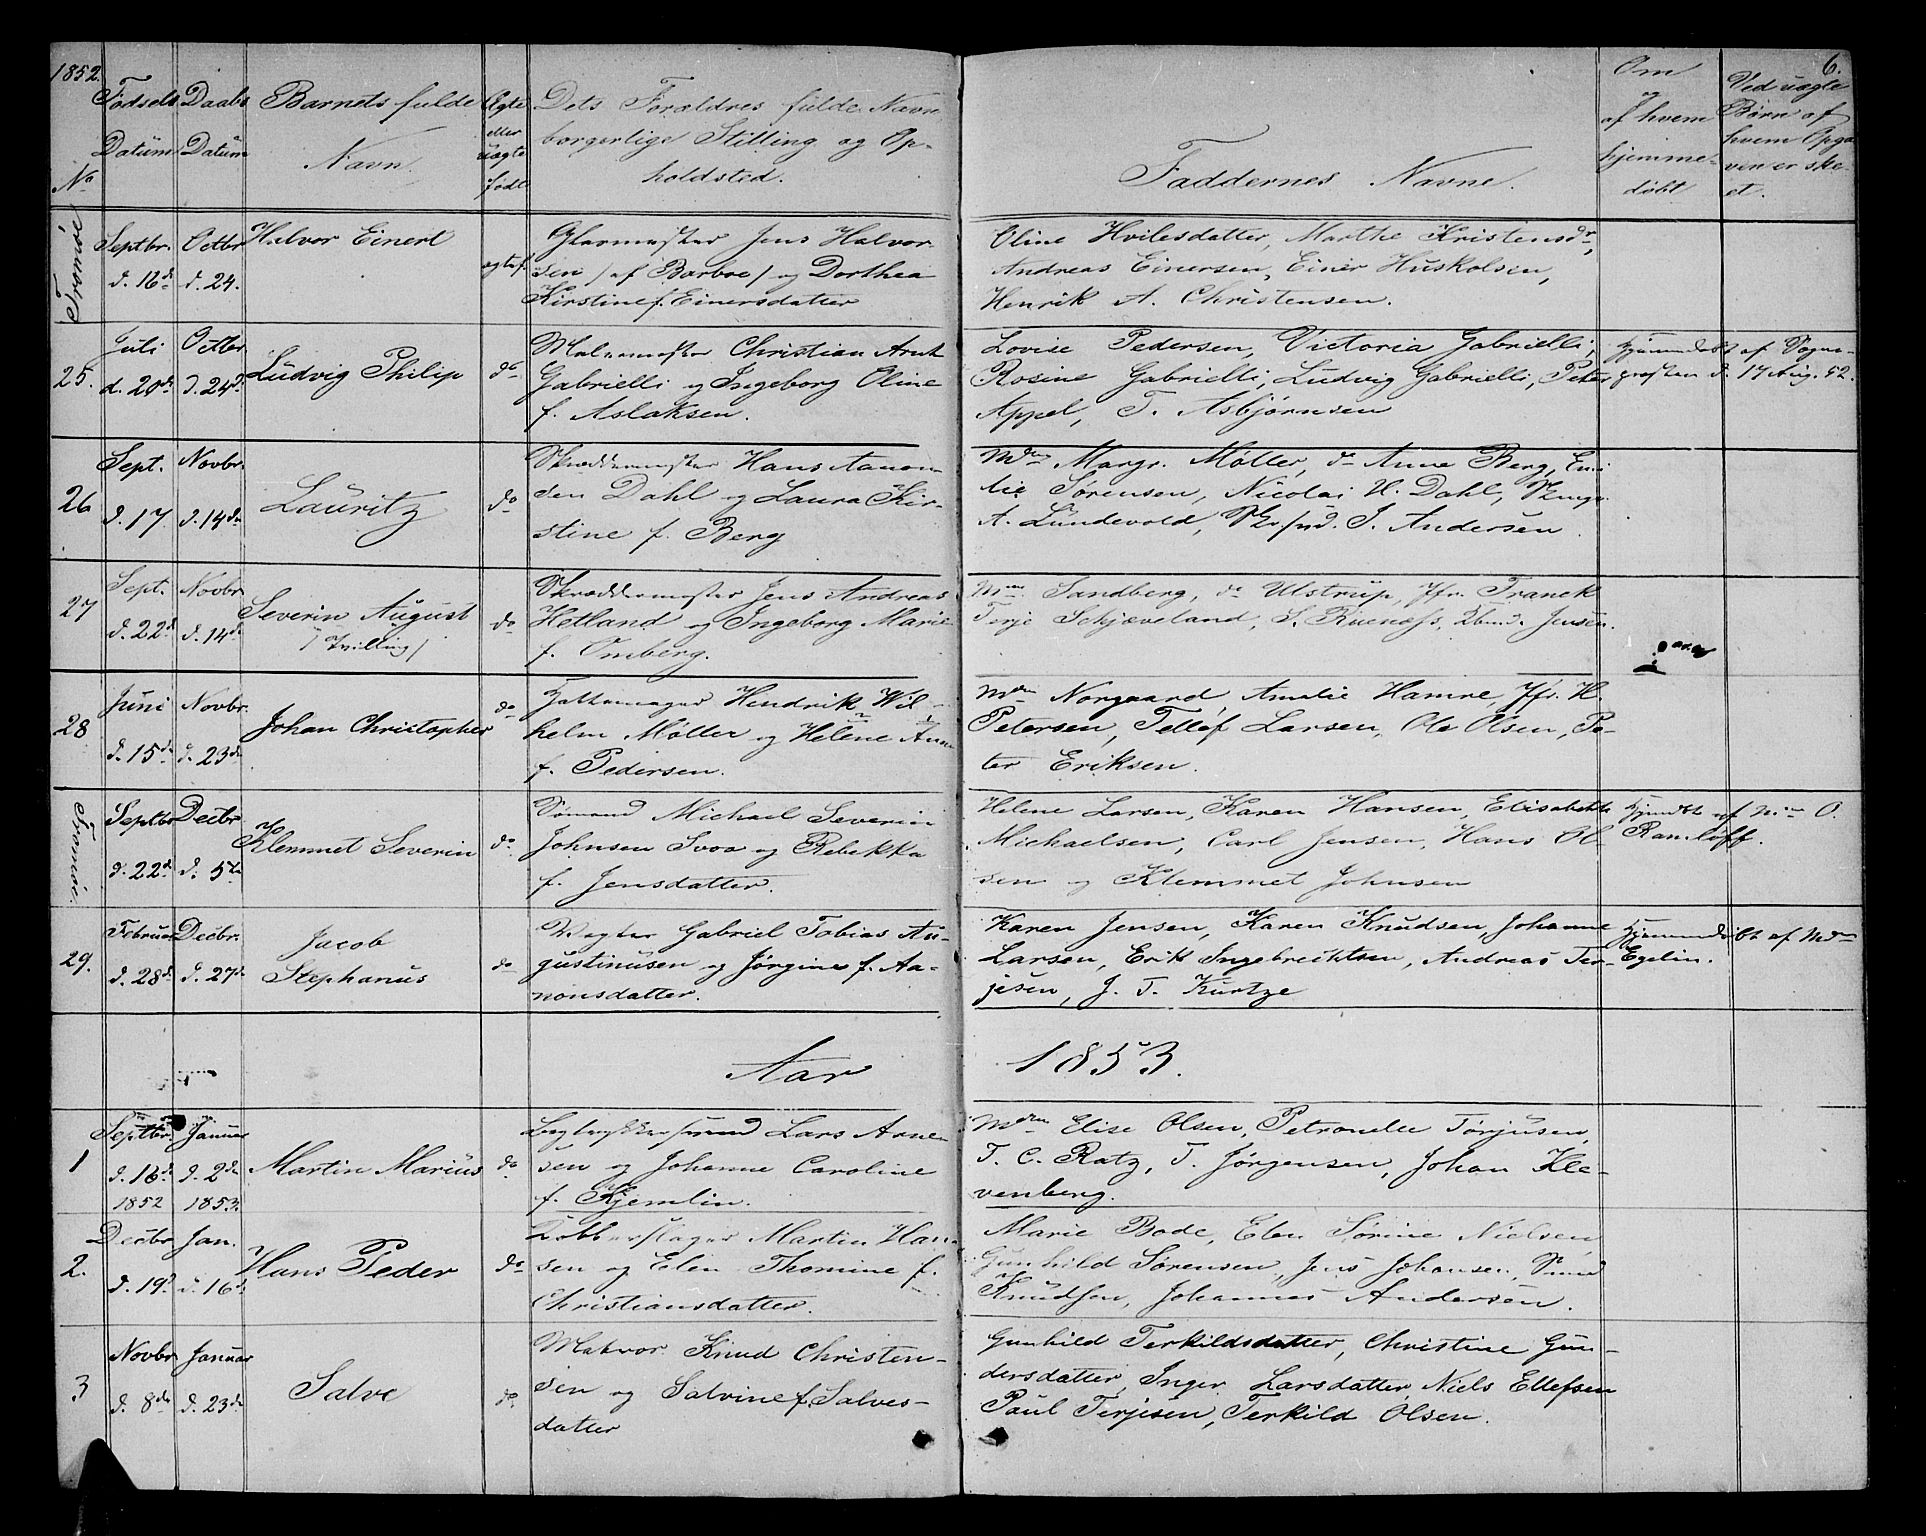 1852.
6.
No
Fødsels Datum
Daabs Datum
Barnets fulde Navn.
Ægte eller uægte født
Dets Forældres fulde Navn
borgerlige Stilling og Op-
holdsted.
Faddernes Navne.
Om
af hvem
hjemme-
døbt
Ved uægte
Børn af
hvem Opga
ven er ske-
et.
Tromöe
Septbr. d. 16de
Octbr d. 24.
Halvor Einert
ægtef.
Glasmester Jens Halvor
sen / af Barboe / og Dorthea
Kirstine f. Einersdatter
Oline Hvilesdatter, Marthe Kristensdr,
Andreas Einersen, Einer Huskolsen,
Henrik A. Christensen.
25.
Juli d. 20de
Octbr. d. 24de
Ludvig Philip
do
Malermester Christian Arnt
Gabrielli og Ingeborg Oline
f. Aslaksen.
Lovise Pedersen, Victoria Gabrielli,
Rosine Gabrielli, Ludvig Gabrielli, Peter
Appel, T. Asbjørnsen
Hjemmedøbt af Sogne-
præsten d. 17 Aug. 52.
26
Sept. d. 17
Novbr. d. 14de
Lauritz
do
Skræddermester Hans Aanon-
sen Dahl og Laura Kir-
stine f. Berg
Mdm Margr. Møller, do Anne Berg, Emi
lie Sørensen, Nicolai H. Dahl,
A. Lundevold, J. Andersen.
27
Sept. d. 22de
Novbr d. 14de
Severin August
/ Tvilling /
do
Skræddermester Jens Andreas
Hetland og Ingeborg Marie
f. Omberg.
Mdm Sandberg, do Ulstrup, Jfr. Franck
Terje Schjæveland, S. Ruenæss, Jensen.
28
Juni d. 15de
Novbr. d. 23de
Johan Christopher
do
Hattemager Hendrik Wil-
helm Møller og Helene Anne
f. Pedersen.
Mdm Norgaard Amalie Hamre, Jfr. H.
Petersen, Tellof Larsen, Ole Olsen, Pe-
ter Eriksen.
Tromöe.
Septbr d. 22de
Decbr d. 5te
Klemmet Severin
do
Sømand Michael Severin
Johnsen Svoa og Rebekka
f. Jensdatter.
Helene Larsen, Karen Hansen, Elisabeth
Michaelsen, Carl Jensen, Hans Ol
sen og Klemmet Johnsen
Hjemdt af Mdm O.
Ramløff.
29.
Februar d. 28de
Decbr. d. 27de
Jacob
Stephanus
do
Vægter Gabriel Tobias Au-
gustinusen og Jørgine f. Aa-
nonsdatter.
Karen Jensen, Karen Knudsen, Johanne
Larsen, Erik Ingebrechtsen, Andreas Ter-
jesen, J. T. Kurtze
Hjemmedøbt af Mdm
Egelin.
Aar 1853.
1
Septbr. d. 16de 1852
Januar d. 2de 1853.
Martin Marius
do
Bogtrykkersvend Lars Arne
sen og Johanne Caroline
f. Kjemlin.
Mdm Elise Olsen, Petronelle Tørjusen,
T. C. Ratz, T. Jørgensen, Johan Kle-
venberg.
2.
Decbr d. 19d
Jan. d. 16de
Hans Peder
do
Kobberslager Martin Han
sen og Elen Thomine f.
Christiansdatter.
Marie Bode, Elen Sørine Nielsen,
Gunhild Sørensen, Jens Johansen,
Knudsen, Johannes Andersen.
3
Novbr d. 8de
Januar d. 23de
Salve
do
Matros Knud Christen-
sen og Salvine f. Salves-
datter
Gunhild Terkildsdatter, Christine Gun-
dersdatter, Inger Larsdatter, Niels Ellefsen
Paul Terjesen, Terkild Olsen.